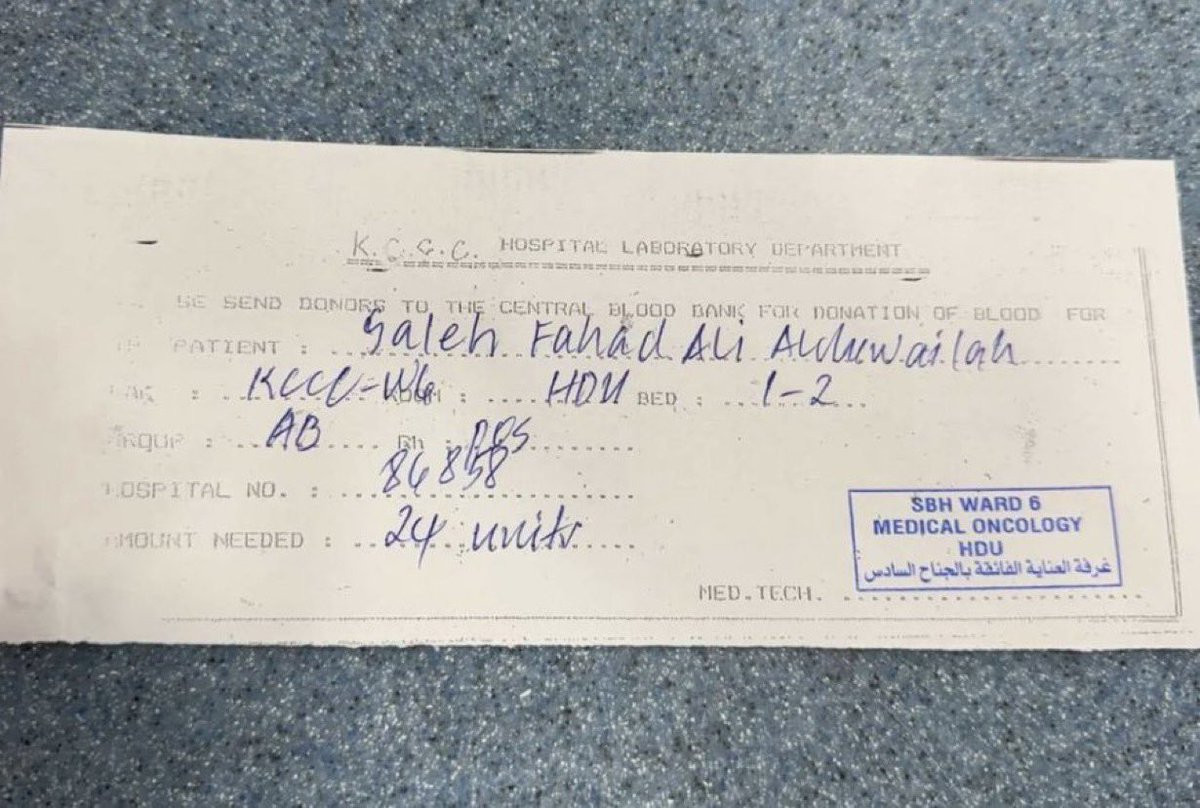 K.C.C.C. HOSPITAL LABORATORY DEPARTMENT
SE SEND DONORS TO THE CENTRAL BLOOD BANK FOR DONATION OF BLOOD FOR
PATIENT : Saleh Fahad Ali Alduwailah
KCCC-W6 ROOM : HDU BED : 1-2
GROUP : AB Rh : POS
HOSPITAL NO. : 86858
AMOUNT NEEDED : 24 units
SBH WARD 6
MEDICAL ONCOLOGY
HDU
غرفة العناية الفائقة بالجناح السادس
MED.TECH.